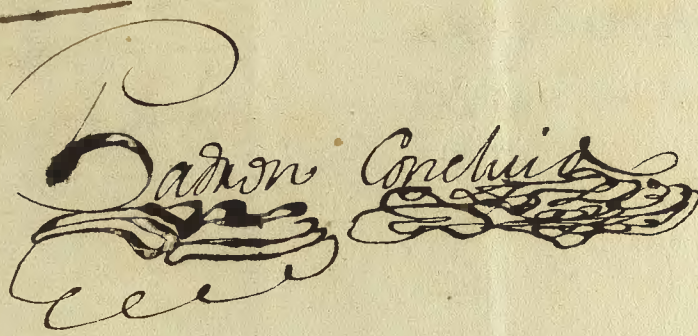 Padron Concluido